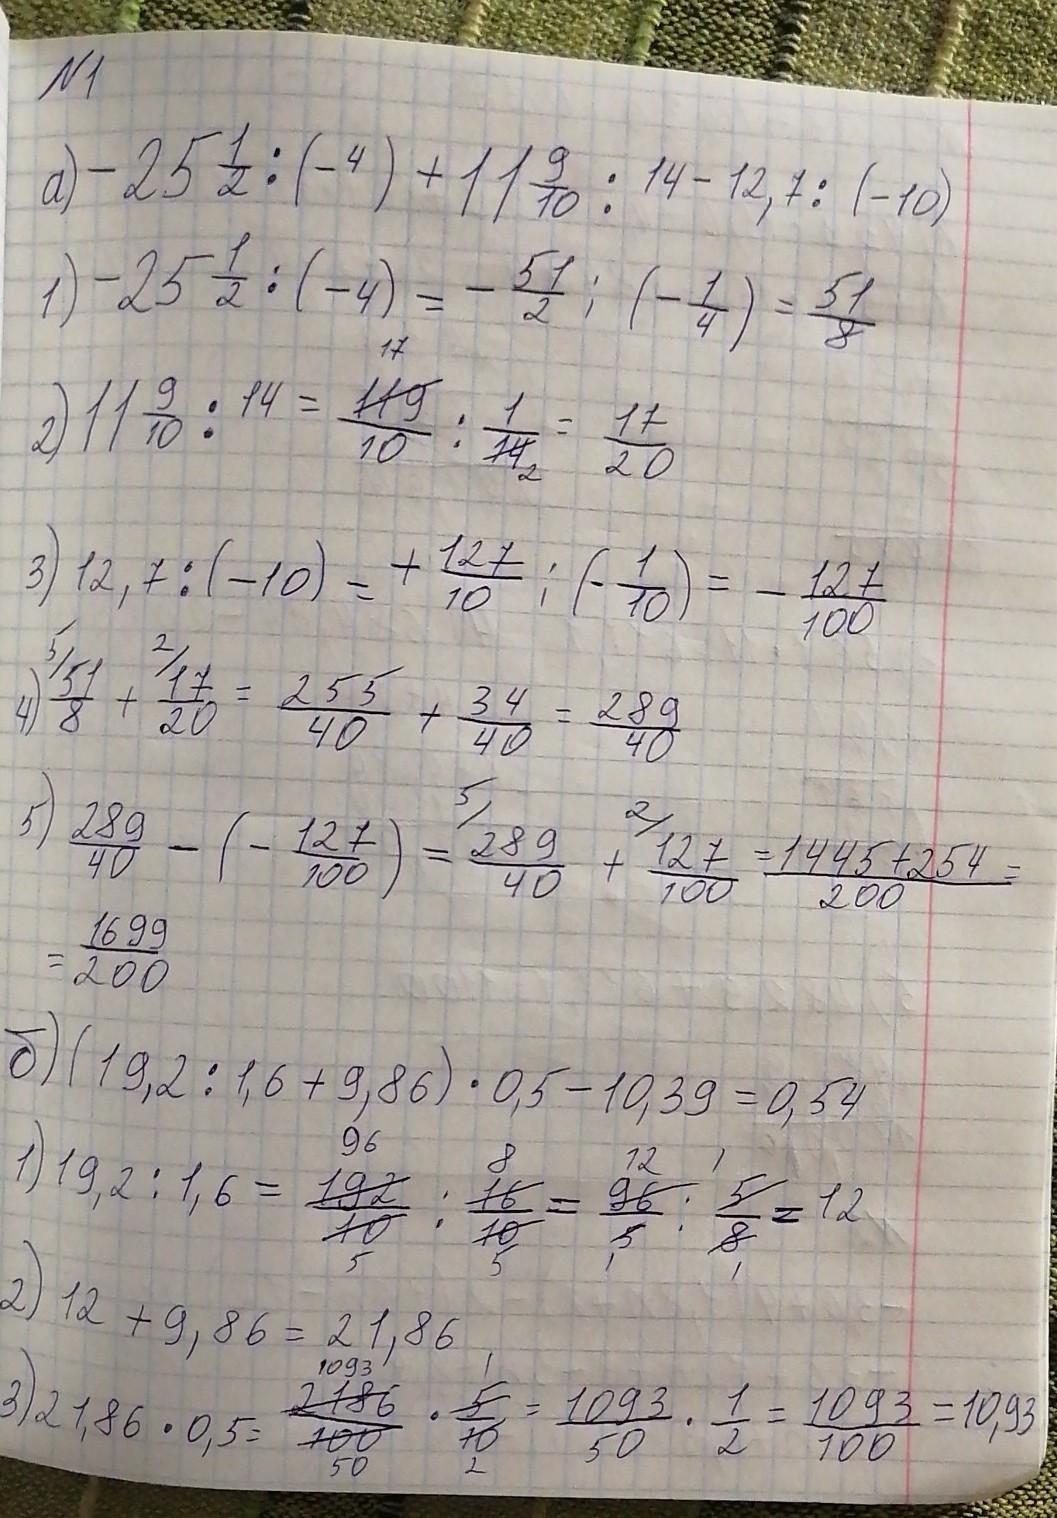 N1
а) -25 1/2 : (-4) + 11 9/10 : 14 - 12,7 : (-10)
1) -25 1/2 : (-4) = - 51/2 : (- 1/4) = 51/8
17
2) 11 9/10 : 14 = 119/10 : 1/14 = 17/20
2
3) 12,7 : (-10) = + 127/10 : (- 1/10) = - 127/100
5/ 2/
4) 51/8 + 17/20 = 255/40 + 34/40 = 289/40
5/ 2/
5) 289/40 - (- 127/100) = 289/40 + 127/100 = 1445+254/200 =
= 1699/200
б) (19,2 : 1,6 + 9,86) · 0,5 - 10,39 = 0,54
96 8 12 1
1) 19,2 : 1,6 = 192/10 : 16/10 = 96/5 : 5/8 = 12
5 5 1 1
2) 12 + 9,86 = 21,86
1093 1
3) 21,86 · 0,5 = 2186/100 · 5/10 = 1093/50 · 1/2 = 1093/100 = 10,93
50 2